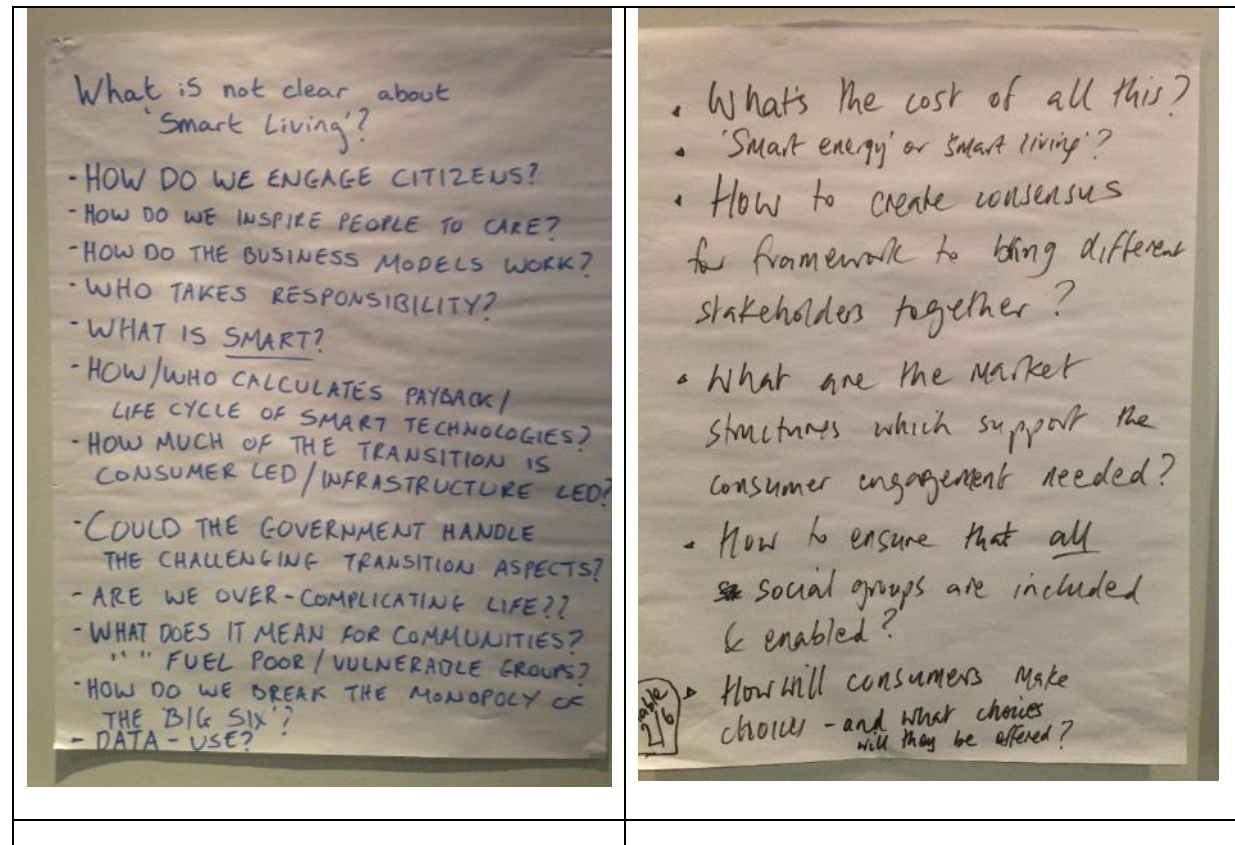 What is not clear about
'Smart Living'?
- HOW DO WE ENGAGE CITIZENS?
- HOW DO WE INSPIRE PEOPLE TO CARE?
- HOW DO THE BUSINESS MODELS WORK?
- WHO TAKES RESPONSIBILITY?
- WHAT IS SMART?
- HOW/WHO CALCULATES PAYBACK/
LIFE CYCLE OF SMART TECHNOLOGIES?
- HOW MUCH OF THE TRANSITION IS
CONSUMER LED/INFRASTRUCTURE LED?
- COULD THE GOVERNMENT HANDLE
THE CHALLENGING TRANSITION ASPECTS?
- ARE WE OVER-COMPLICATING LIFE??
- WHAT DOES IT MEAN FOR COMMUNITIES?
" " " FUEL POOR/VULNERABLE GROUPS?
- HOW DO WE BREAK THE MONOPOLY OF
THE 'BIG SIX'?
- DATA - USE?
• What's the cost of all this?
• 'Smart energy' or 'smart living'?
• How to create consensus
for framework to bring different
stakeholders together?
• What are the market
structures which support the
consumer engagement needed?
• How to ensure that all
social groups are included
& enabled?
• How will consumers make
choices - and what choices
will they be offered?